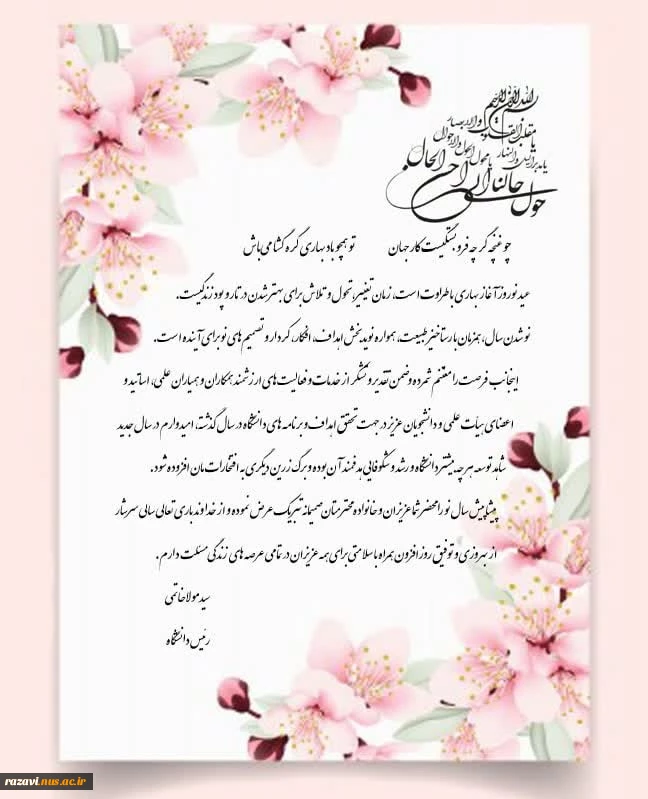 بسم الله الرحمن الرحیم
یا مقلب القلوب والابصار
یا مدبر اللیل والنهار
یا محول الحول والاحوال
حول حالنا الی احسن الحال
چو غنچه گر چه فروبستگیست کار جهان تو همچو باد بهاری گره گشا می باش
عید نوروز آغاز بهاری با طراوت است، زمان تغییر، تحول و تلاش برای بهتر شدن در تار و پود زندگیست.
نو شدن سال، همزمان با رستاخیز طبیعت، همواره نوید بخش اهداف، افکار، کردار و تصمیم های نو برای آینده است.
اینجانب فرصت را مغتنم شمرده و ضمن تقدیر و تشکر از خدمات و فعالیت های ارزشمند همکاران و همیاران علمی، اساتید و
اعضای هیأت علمی و دانشجویان عزیز در جهت تحقق اهداف و برنامه های دانشگاه در سال گذشته، امیدوارم در سال جدید
شاهد توسعه هر چه بیشتر دانشگاه و رشد و شکوفایی هدفمند آن بوده و برگ زرین دیگری به افتخاراتمان افزوده شود.
پیشاپیش سال نو را محضر شما عزیزان و خانواده محترمتان صمیمانه تبریک عرض نموده و از خداوند باری تعالی سالی سرشار
از بهروزی و توفیق روز افزون همراه با سلامتی برای همه عزیزان در تمامی عرصه های زندگی مسئلت دارم.
سید مولا خاتمی
رئیس دانشگاه
razavi.nus.ac.ir